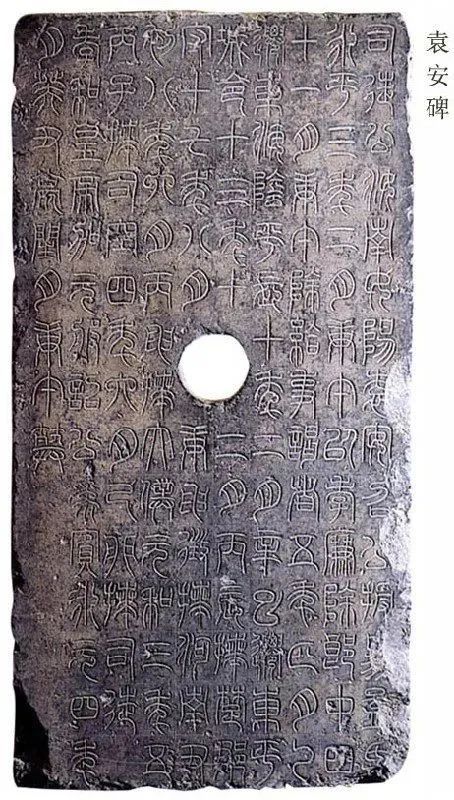 袁安碑
司徒公汝南女陽袁安召公授易孟氏
永平三年二月庚午以孝廉除郎中四
十一月庚午除給事謁者五年正月乙
遷東海陰平長十年二月辛巳遷東平
城令十三年十二月丙辰拜楚郡
守十七年八月庚申徵拜河南尹
初八年六月丙申拜太僕元和三年五
丙子拜司空四年六月己卯拜司徒
孝和皇帝加元服詔公為賓永元四年
月癸丑薨閏月庚午葬